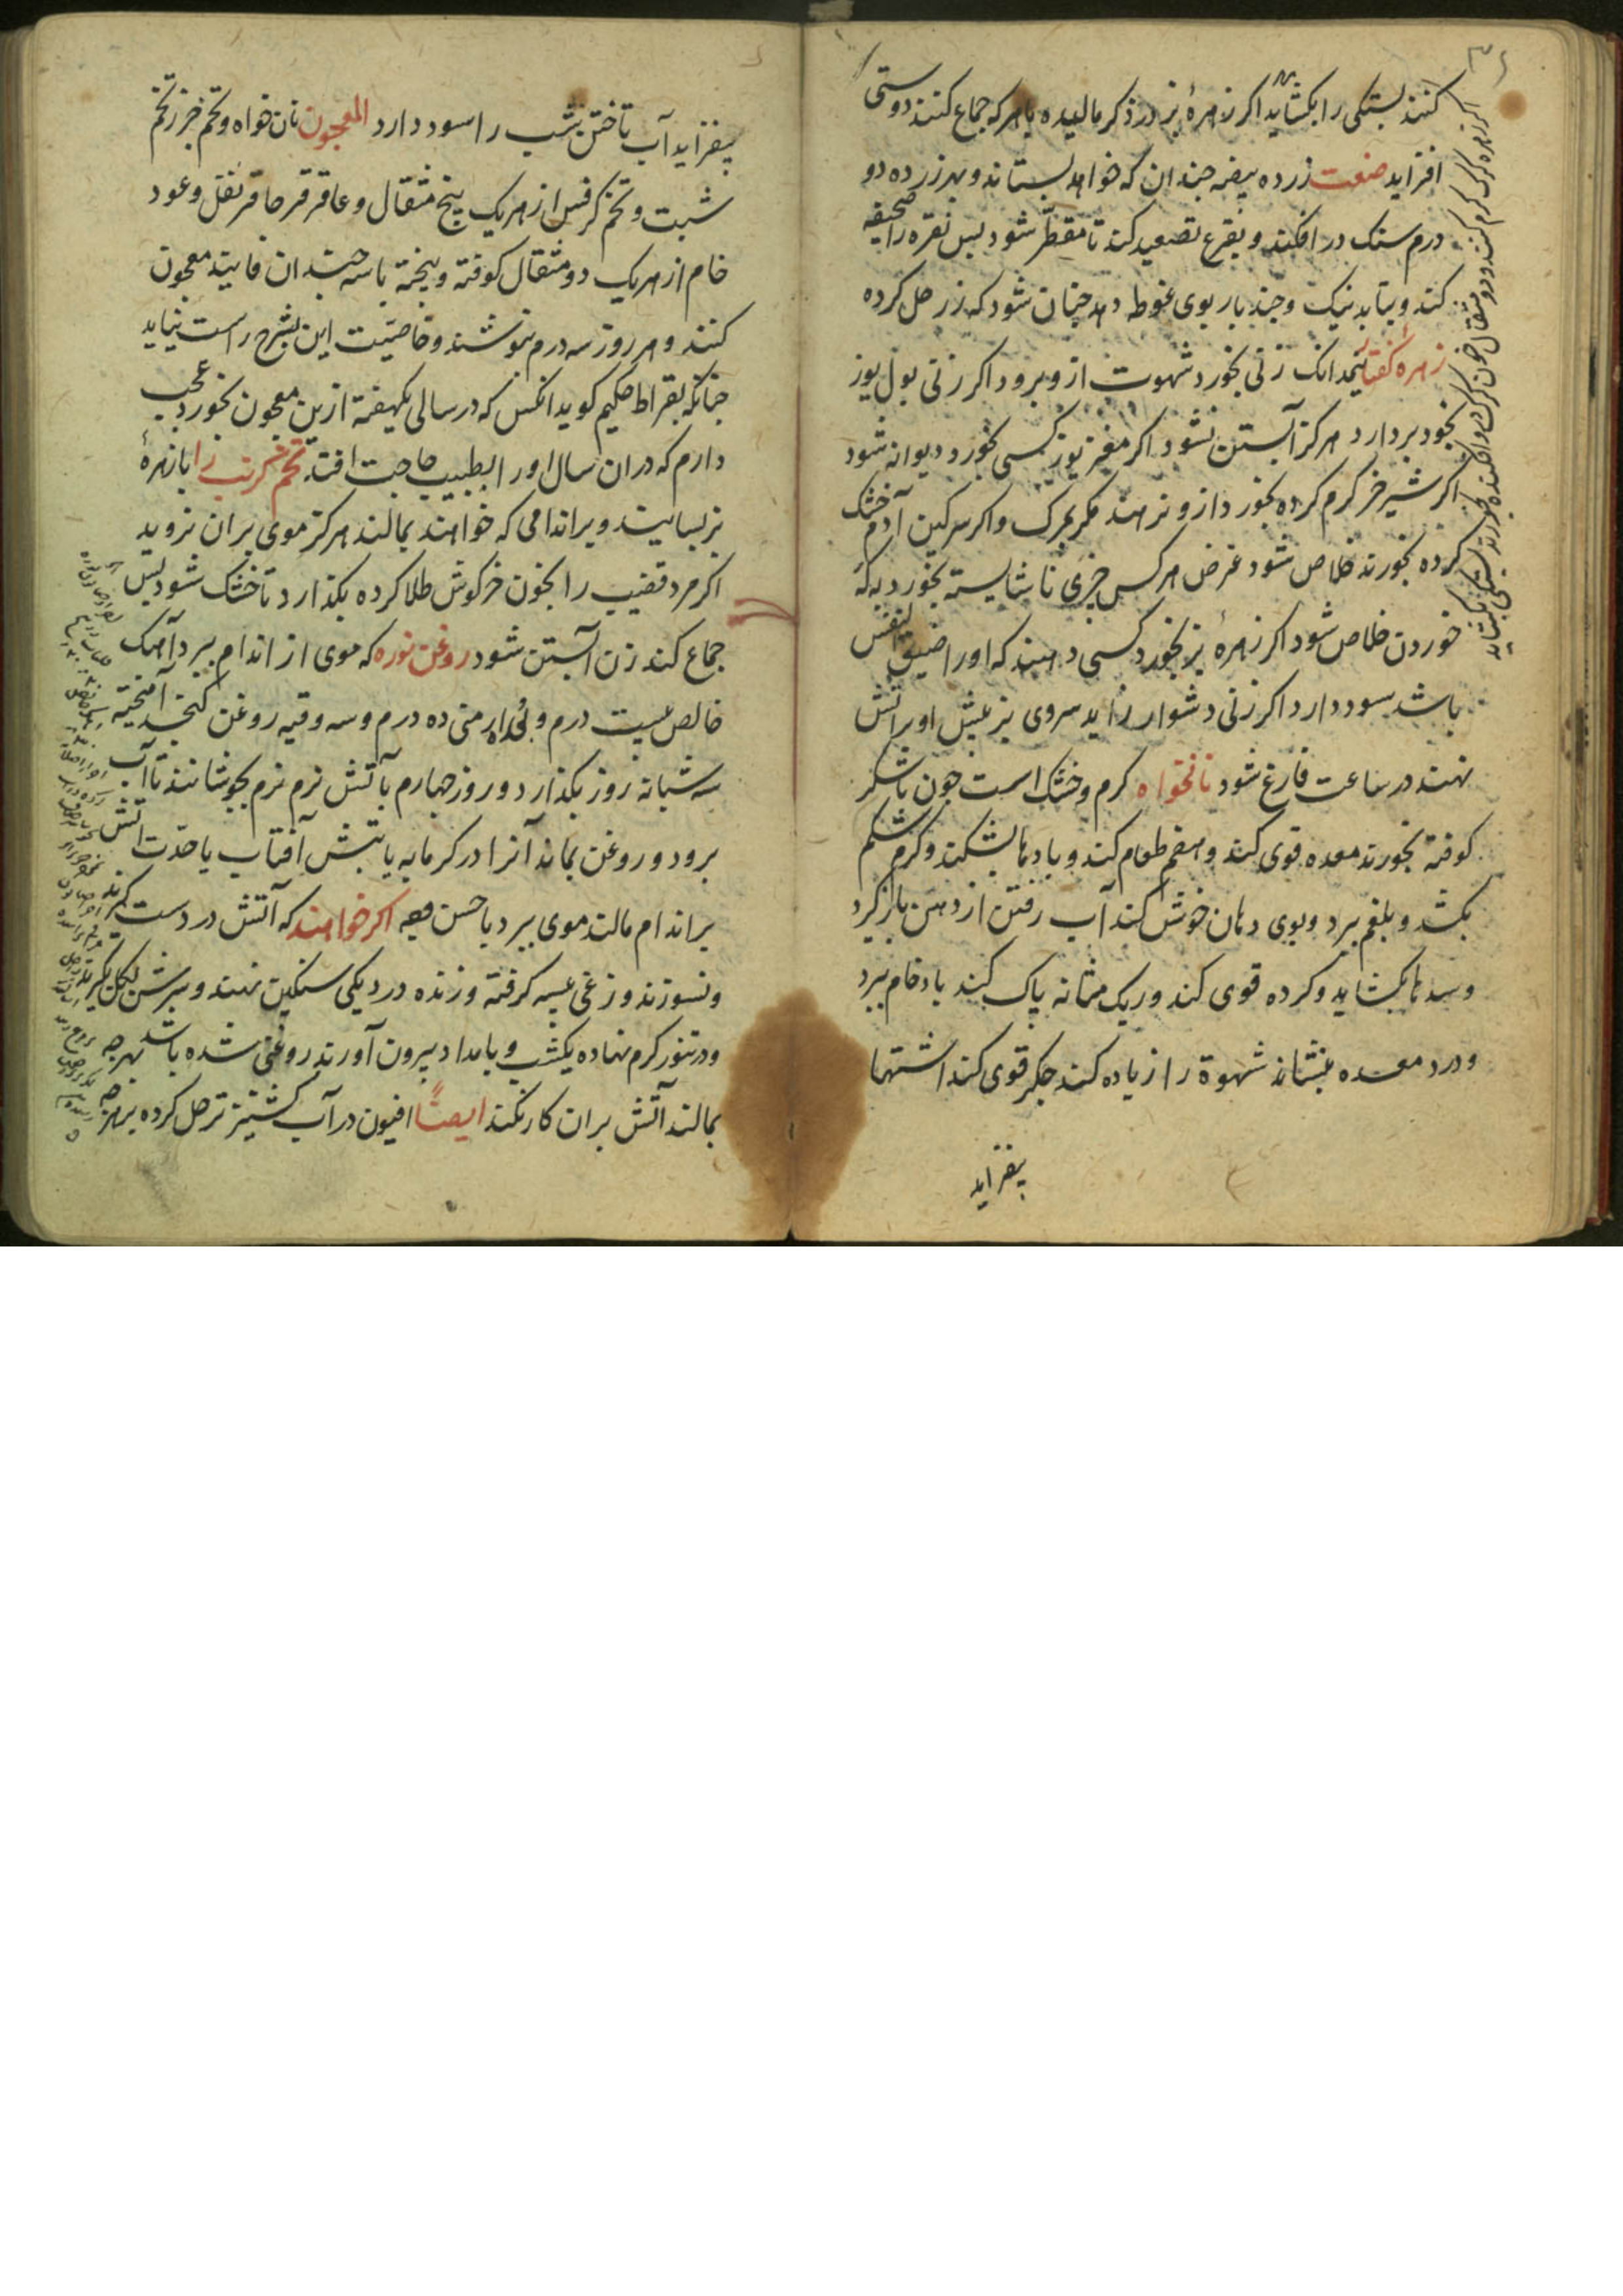 کنند بستگی را بکشاید اکر زهرهٔ بز در ذکر مالیده با هرکه جماع کنند دوستی
افزاید صنعت زرده بیضه چندان که خواهد بستاند و بهر زرده دو
درم سنک در افکند و بقرع تصعید کند تا مقطر شود پس نقره را صحیفه
کند و بتابد نیک و چند بار بوی غوطه دهد چنان شود که زر حل کرده
زهره کفتار نیمدانک زنی بخورد شهوت ازو برود اکر زنی بول یوز
بخود بردارد هرکز آبستن نشود اکر مغز یوز کسی بخورد دیوانه شود
اکر شیر خر کرم کرده بخورد ازو نرهند مکر بمرک و اکر سرکین آدم خشک
کرده بخورند خلاص شود غرض هرکس چیزی ناشایسته بخورد به که
خوردن خلاص شود اکر زهرهٔ بز بخورد کسی دهند که اورا ضیق النفس
باشد سود دارد اکر زنی دشوار زاید سروی بز پیش او بر آتش
نهند در ساعت فارغ شود نانخواه کرم و خشک است چون با شکر
کوفته بخورند معده قوی کند و هضم طعام کند و بادها بشکند و کرم شکم
بکشد و بلغم ببرد و بوی دهان خوش کند آب رفتن از دهن باز کیرد
و سدها بکشاید و کرده قوی کند و ریک مثانه پاک کند باد خام ببرد
و درد معده بنشاند شهوة را زیاده کند جکر قوی کند اشتها
بیفزاید
اکر زهره کرک کرم کنند و دو مثقال خون کرک در و افکنده بخورند بستگی بکشاید
بیفزاید آب تاختن بشب را سود دارد المعجون نان خواه و تخم جزر تخم
شبت و تخم کرفس از هر یک پنج مثقال و عاقرقرحا قرنفل و عود
خام از هر یک دو مثقال کوفته و بیخته با سه چندان فانید معجون
کنند و هر روز سه درم بنوشند و خاصیت این بشرح راست نیاید
چنانکه بقراط حکیم کوید انکس که در سالی یکهفته ازین معجون بخورد عجب
دارم که در ان سال اورا بطبیب حاجت افتد تخم خربت را با زهرهٔ
بز بسایند و بر اندامی که خواهند بمالند هرکز موی بران نروید
اکر مرد قضیب را بخون خرکوش طلا کرده بکذارد تا خشک شود پس
جماع کند زن آبستن شود روغن نوره که موی از اندام ببرد آهک
خالص بیست درم و ده درم و سه وقیه روغن کنجد آمیخته
سه شبانه روز بکذارد و روز چهارم با آتش نرم نرم بجوشانند تا آب
برود و روغن بماند آنرا در کرمابه یا بتبش آفتاب یا حدت آتش
بر اندام مالند موی ببرد با حسن وجه اکر خواهند که آتش در دست کیرند
و نسوزند وزغی کرفته و زنده در دیکی سنکین نهند و سرش بکل بکیرند
و در تنور کرم نهاده یکشب و بامداد بیرون آورند روغنی شده باشد بهر چه
بمالند آتش بران کار نکند ایضًا افیون در آب کشنیز تر حل کرده بهرچه